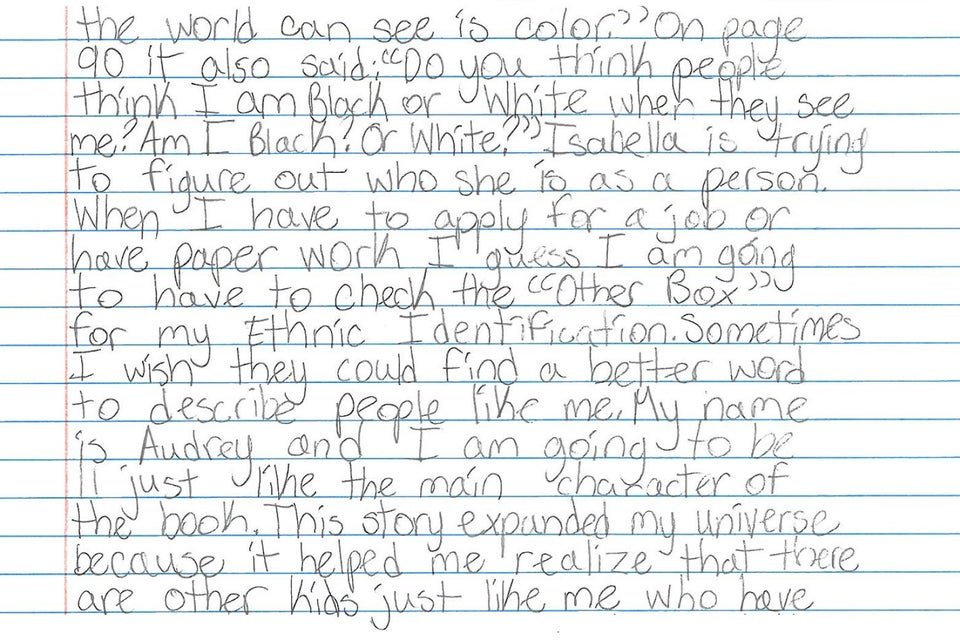 the world can see is color?” On page
90 it also said: “Do you think people
think I am Black or White when they see
me? Am I Black? Or White?” Isabella is trying
to figure out who she is as a person.
When I have to apply for a job or
have paper work I guess I am going
to have to check the “Other Box”
for my Ethnic Identification. Sometimes
I wish they could find a better word
to describe people like me. My name
is Audrey and I am going to be
11 just like the main character of
the book. This story expanded my universe
because it helped me realize that there
are other kids just like me who have